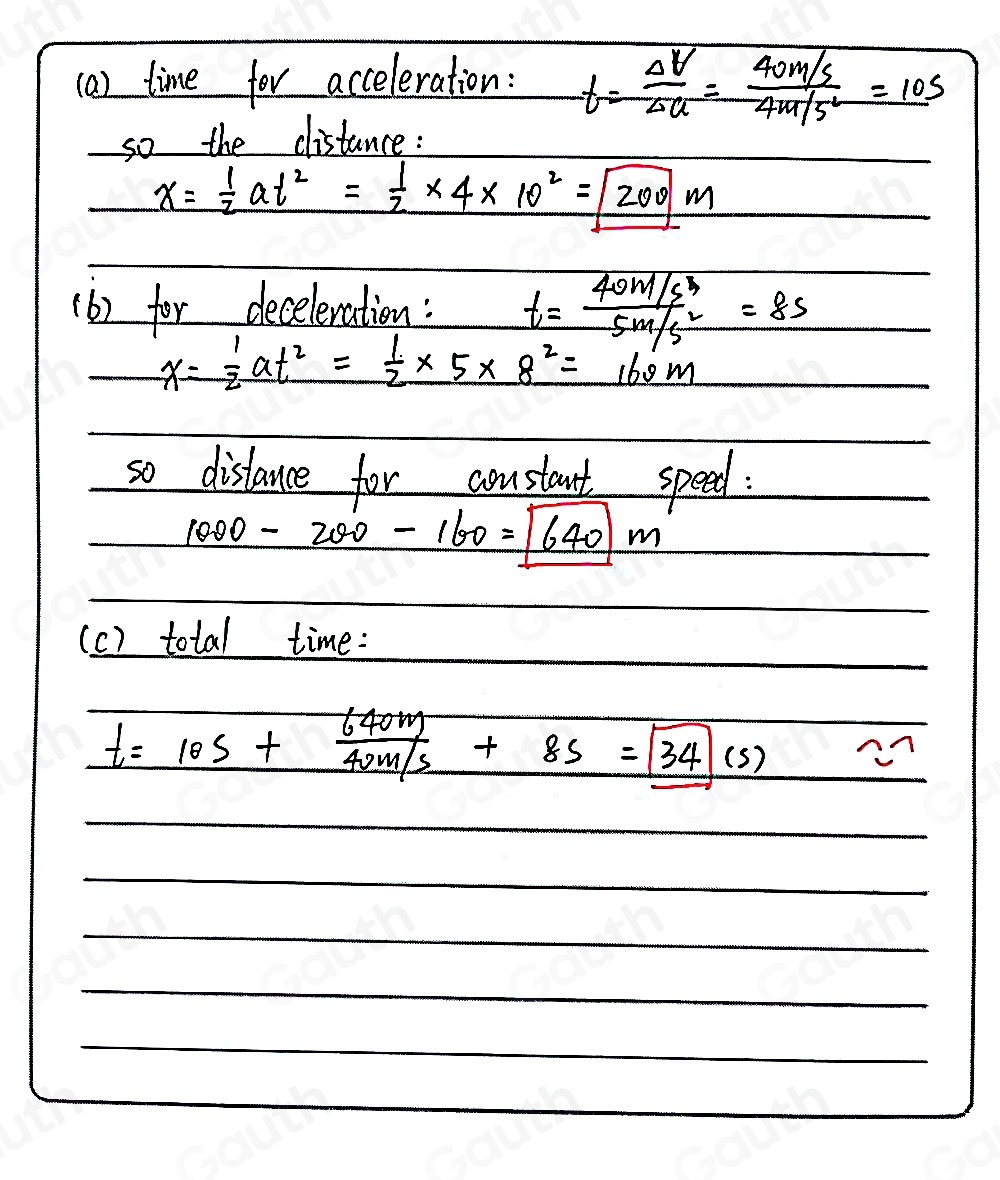 (a) time for acceleration: t = ΔV/Δa = 40m/s / 4m/s² = 10s
so the distance:
x = 1/2 at² = 1/2 × 4 × 10² = 200 m
(b) for deceleration: t = 40m/s / 5m/s² = 8s
x = 1/2 at² = 1/2 × 5 × 8² = 160m
so distance for constant speed:
1000 - 200 - 160 = 640 m
(c) total time:
t = 10s + 640m / 40m/s + 8s = 34 (s)
Gauth